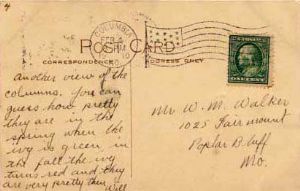 4
COLUMBIA
FEB 4
PM
MO.
POST CARD
CORRESPONDENCE
ADDRESS ONLY
ONE CENT
Another view of the
columns. You can
guess how pretty
they are in the
spring when the
ivy is green, in
the fall the ivy
turns red and they
are very pretty then
Will
Mr W. M. Walker
1025 Fairmount
Poplar Bluff
Mo.